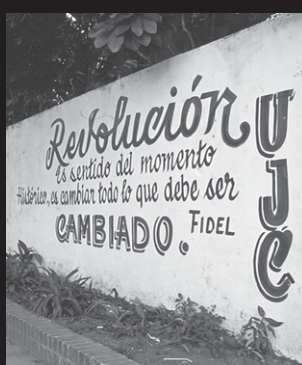 Revolución
es sentido del momento
Histórico, es cambiar todo lo que debe ser
CAMBIADO. FIDEL
UJC